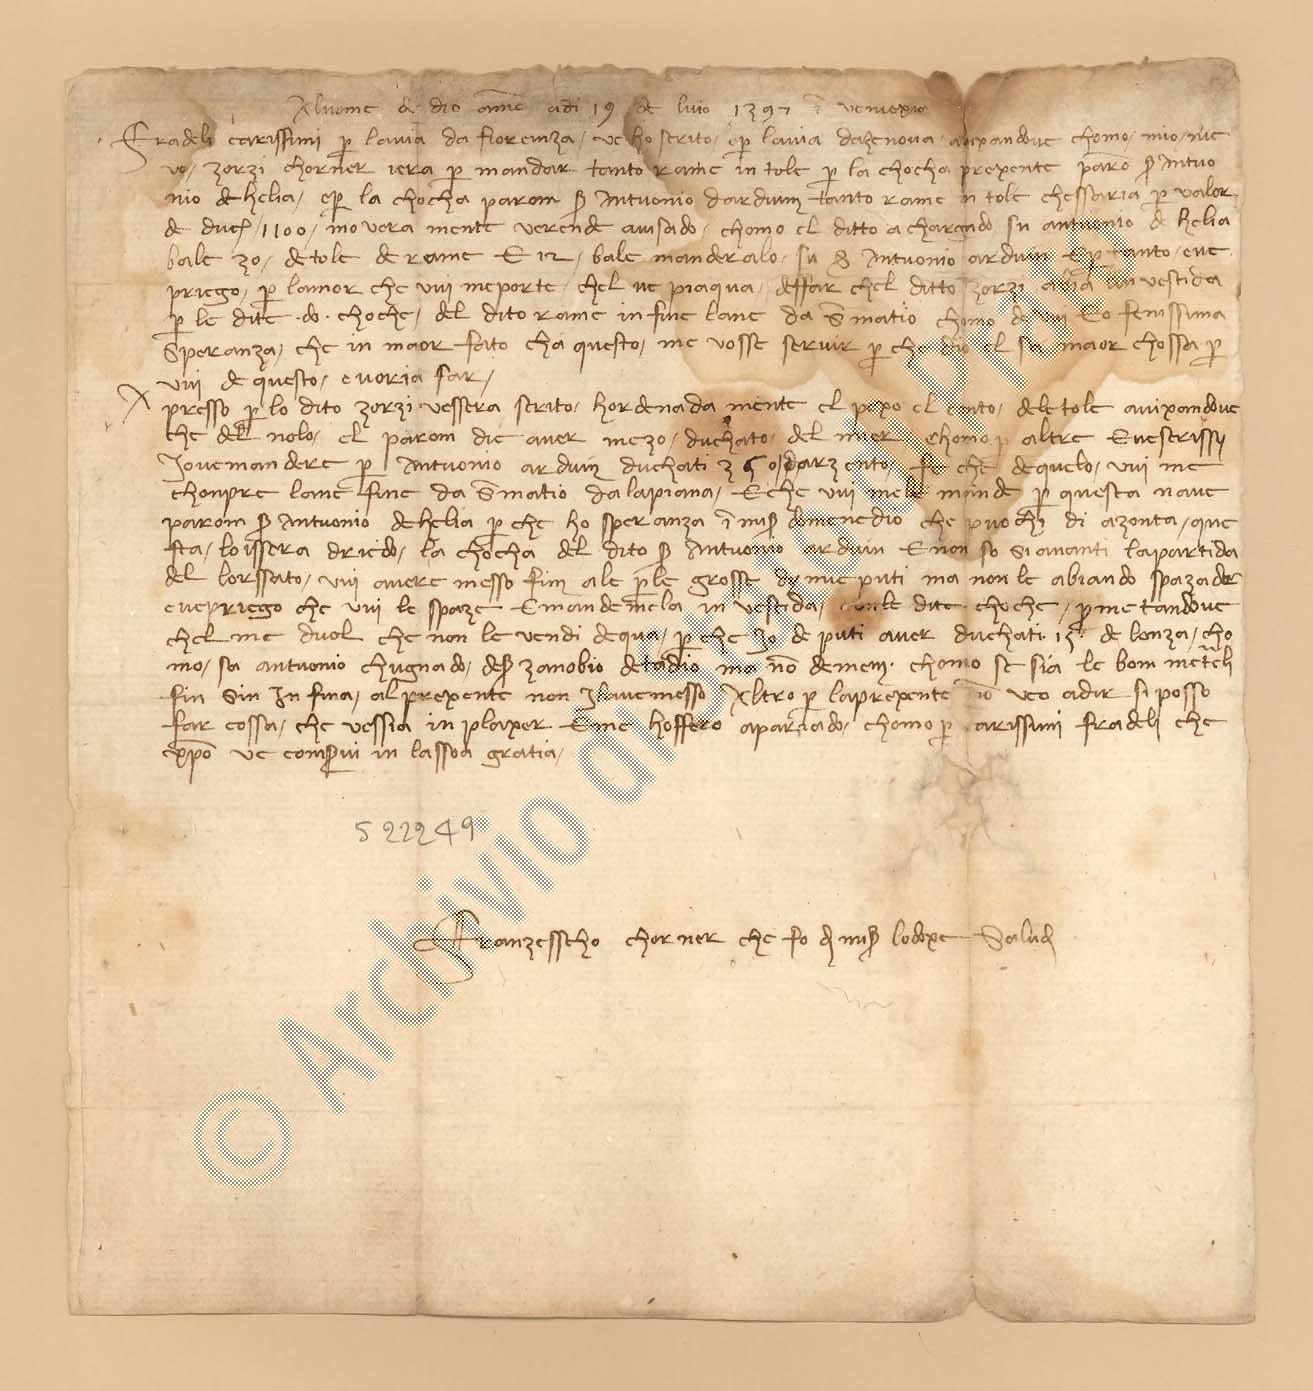 Al nome de dio ame adi 19 de luio 1397 i venexia
Fradeli carissimi p lavia da fiorenza / ve ho scrito / e p lavia dazenova / avixandove chomo / mio / nie
vo / zorzi chorner iera p mandar tanto rame in tole p la chocha prexente paron S Antuo
nio de helia / e p la chocha paron S Antuonio darduin tanto rame in tole chessaria p valor
de duch / 1100 / mo vera mente verende avisado / chomo el ditto a chargado su antuonio de helia
bale 30 / de tole de rame E 12 / bale manderalo / su S Antuonio arduin E p tanto / eve
priego / p lamor che vui me porte / chel ve piaqua / deffar chel ditto zorzi abia in vestida
p le dite do choche / del dito rame in fine lane da S matio chomo de vui ho fenissima
Speranza / che in maor fato cha questo / me vosse servir p che dio el sa maor chossa p
vui de questo / e voria far /
Apresso p lo dito zorzi vessera scrito / hordenada mente el pexo el conto / dele tole avixandove
che del nolo / el paron die aver mezo / duchato / del mier chomo p altre Evescrissi
Jovemandere p Antuonio arduin duchati 360 / darzento / fe che de quelo / vui me
chonpre lane fine da S matio dalapiana / E che vui mele mande p questa nave
paron S Antuonio dehelia p che ho speranza i mis domenedio che puo di azonta / que
sta / lo issera driedo / la chocha del dito S Antuonio arduin E non so si avanti lapartida
del lorssato / vui avere messo fin ale perle grosse de mie puti ma non le abiando spazade
eve priego che vui le spaze E mandemela in vestida / con le dite choche / prometandove
chel me duol che non le vendi dequa / p che 30 de puti aver duchati 15 de lonza / cho
mo / sa antuonio chugnado / de S zanobio detadio ma no demen chomo se sia le bon meterli
fin Sin In fina / al prexente non Ilavemesso Altro p laprexente io veo adir si posso
far cossa / che vessia in plaxer E me hoffero apariado / chomo p carissimi fradeli che
xpo ve conservi in lassoa gratia /
522249
Franzesscho chorner che fo d mis lodoxe Salud